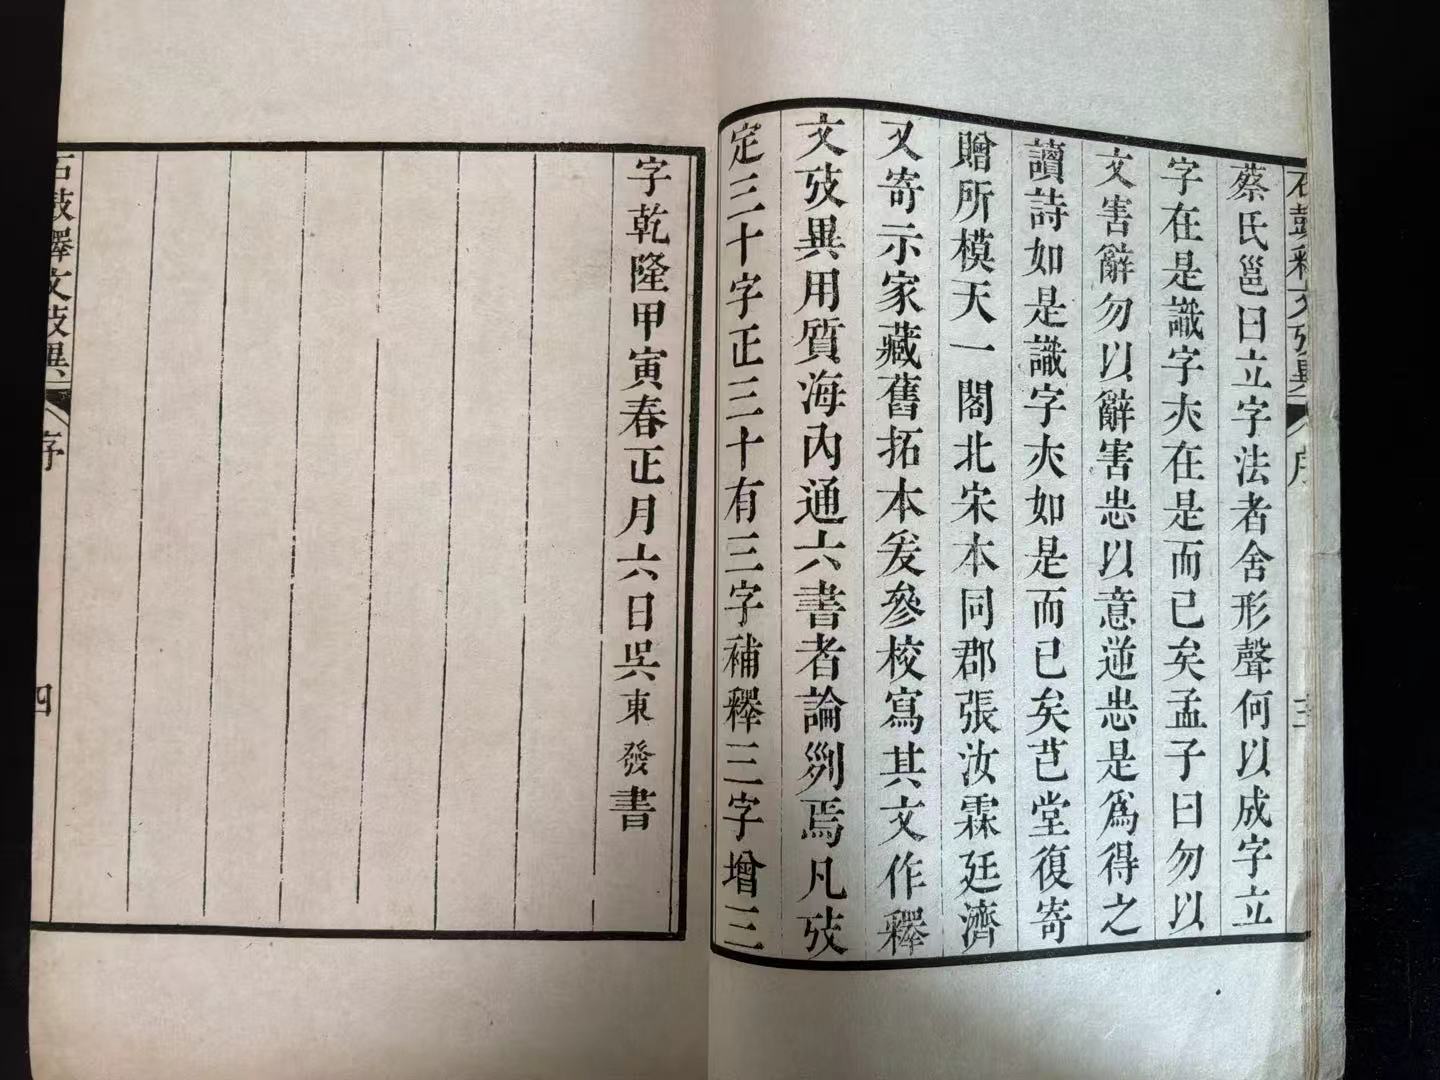 石鼓釋文攷異
序
三
蔡氏邕曰立字法者舍形聲何以成字立
字在是識字亦在是而已矣孟子曰勿以
文害辭勿以辭害志以意逆志是為得之
讀詩如是識字亦如是而已矣芑堂復寄
贈所模天一閣北宋本同郡張汝霖廷濟
又寄示家藏舊拓本爰參校寫其文作釋
文攷異用質海內通六書者論列焉凡攷
定三十字正三十有三字補釋三字增三
字乾隆甲寅春正月六日吳東發書
石鼓釋文攷異
序
四